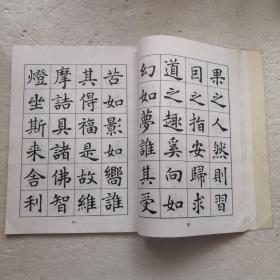 果之人然則習
囙之指安歸求
道之趣奚向如
幻如夢誰其受
苦如影如嚮誰
其得福是故維
摩詰具諸佛智
燈坐斯来舍利